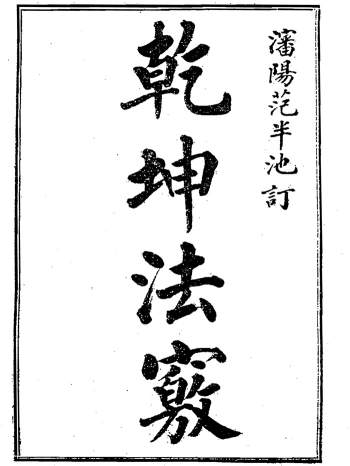 瀋陽范半池訂
乾坤法竅